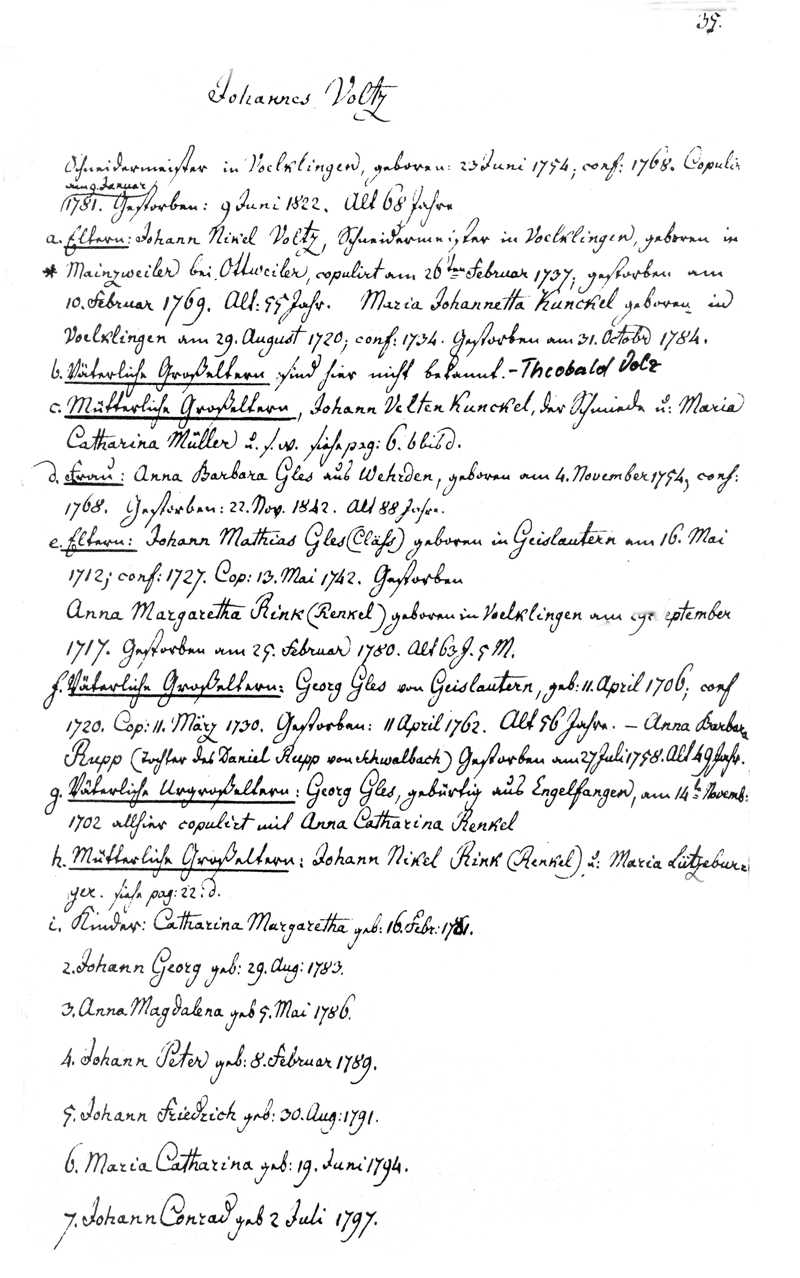 35.
Johannes Voltz
Schneidermeister in Voelklingen, geboren: 23 Juni 1754; conf: 1768. Copulir
am 9. Januar
1781. Gestorben: 9 Juni 1822. Alt 68 Jahre
a. Eltern: Johann Nikel Voltz, Schneidermeister in Voelklingen, geboren in
* Mainzweiler bei Ottweiler, copulirt am 26ten Februar 1737; gestorben am
10. Februar 1769. Alt: 55 Jahr. Maria Johannetta Kunckel geboren in
Voelklingen am 29. August 1720; conf: 1734. Gestorben am 31. Octobr 1784.
b. Väterliche Großeltern sind hier nicht bekannt. - Theobald Volz
c. Mütterliche Großeltern, Johann Velten Kunckel, der Schmiede u: Maria
Catharina Müller u. s. w. siehe pag: 6. b bis d.
d. Frau: Anna Barbara Gles aus Wehrden, geboren am 4. November 1754, conf:
1768. Gestorben: 22. Nov. 1842. Alt 88 Jahre.
e. Eltern: Johann Mathias Gles (Cläss) geboren in Geislautern am 16. Mai
1712; conf: 1727. Cop: 13. Mai 1742. Gestorben
Anna Margaretha Rink (Renkel) geboren in Voelklingen am eptember
1717. Gestorben am 25. Februar 1780. Alt 63 J. 5 M.
f. Väterliche Großeltern: Georg Gles von Geislautern, geb: 11. April 1706; conf
1720. Cop: 11. März 1730. Gestorben: 11 April 1762. Alt 56 Jahre. - Anna Barbara
Rupp (Tochter des Daniel Rupp von Schwalbach) Gestorben am 27 Juli 1758. Alt 49 Jahr.
g. Väterliche Urgroßeltern: Georg Gles, gebürtig aus Engelfangen, am 14ten Novemb:
1702 allhier copulirt mit Anna Catharina Renkel
h. Mütterliche Großeltern: Johann Nikel Rink (Renkel) u: Maria Lützebur
ger. siehe pag: 22: d.
i. Kinder: Catharina Margaretha geb: 16. Febr: 1781.
2. Johann Georg geb: 29. Aug: 1783.
3. Anna Magdalena geb 5. Mai 1786.
4. Johann Peter geb: 8. Februar 1789.
5. Johann Friedrich geb: 30. Aug: 1791.
6. Maria Catharina geb: 19. Juni 1794.
7. Johann Conrad geb 2 Juli 1797.